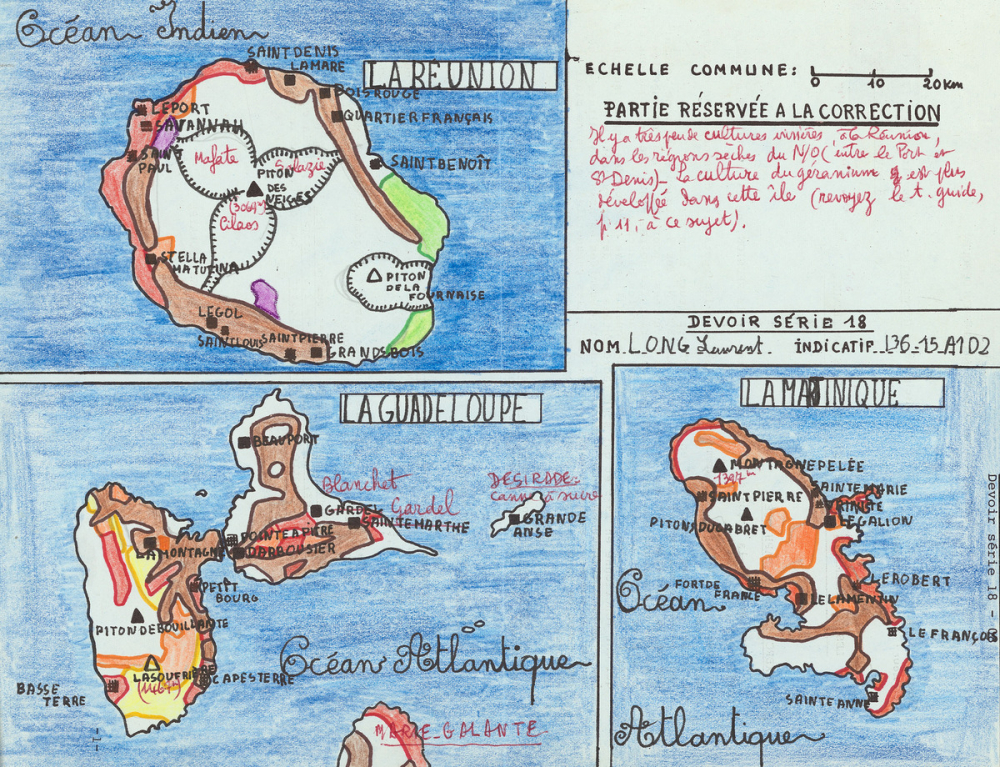 Océan Indien
LA REUNION
SAINT DENIS
LAMARE
BOIS ROUGE
QUARTIER FRANÇAIS
LE PORT
SAVANNAH
SAINT
PAUL
Mafate
Salazie
PITON
DES
NEIGES
(3069m)
Cilaos
SAINT BENOÎT
STELLA
MATUTINA
PITON
DE LA
FOURNAISE
LE GOL
SAINT LOUIS
SAINT PIERRE
GRANDS BOIS
ECHELLE COMMUNE:
0 10 20 Km
PARTIE RÉSERVÉE A LA CORRECTION
Il y a très peu de cultures vivrières, à la Réunion,
dans les régions sèches du N/O (entre le Port et
St Denis)_ La culture du géranium est plus
développée dans cette île (revoyez le t. guide,
p 11, à ce sujet).
DEVOIR SÉRIE 18
NOM LONG Laurent. INDICATIF 136-15 A1D2
LA GUADELOUPE
BEAUPORT
Blanchet
Gardel
GARDEL
SAINTE MARTHE
DESIRADE
canne à sucre
GRANDE
ANSE
POINTE A PITRE
DARBOUSIER
LA MONTAGNE
PETIT
BOURG
PITON DE BOUILLANTE
LA SOUFRIERE
(1467m)
CAPESTERRE
BASSE
TERRE
Océan Atlantique
MARIE-GALANTE
-1-
LA MARTINIQUE
MONTAGNE PELÉE
1397m
SAINTE MARIE
TRINITÉ
LE GALION
SAINT PIERRE
PITONS DU CABRET
FORT DE
FRANCE
LE LAMENTIN
LE ROBERT
LE FRANÇOIS
SAINTE ANNE
Océan
Atlantique
Devoir série 18 -